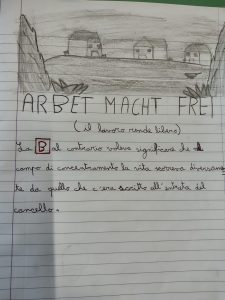 ARBET MACHT FREI
(il lavoro rende libero)
La B al contrario voleva significare che il
campo di concentramento la vita scorreva diversamen
te da quello che c'era scritto all'entrata del
cancello.